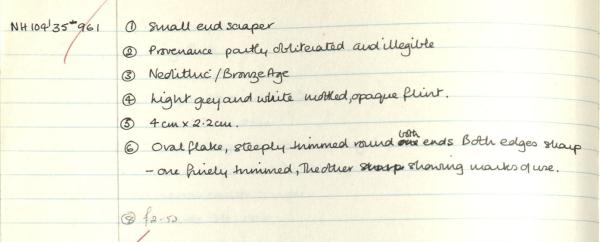 NH104/35*961 ① Small end scraper
② Provenance partly obliterated and illegible
③ Neolithic/Bronze Age
④ Light grey and white mottled, opaque flint.
⑤ 4cm x 2.2cm.
⑥ Oval flake, steeply trimmed round both ends Both edges sharp
– one finely trimmed, The other showing marks of use.
⑧ £2-50